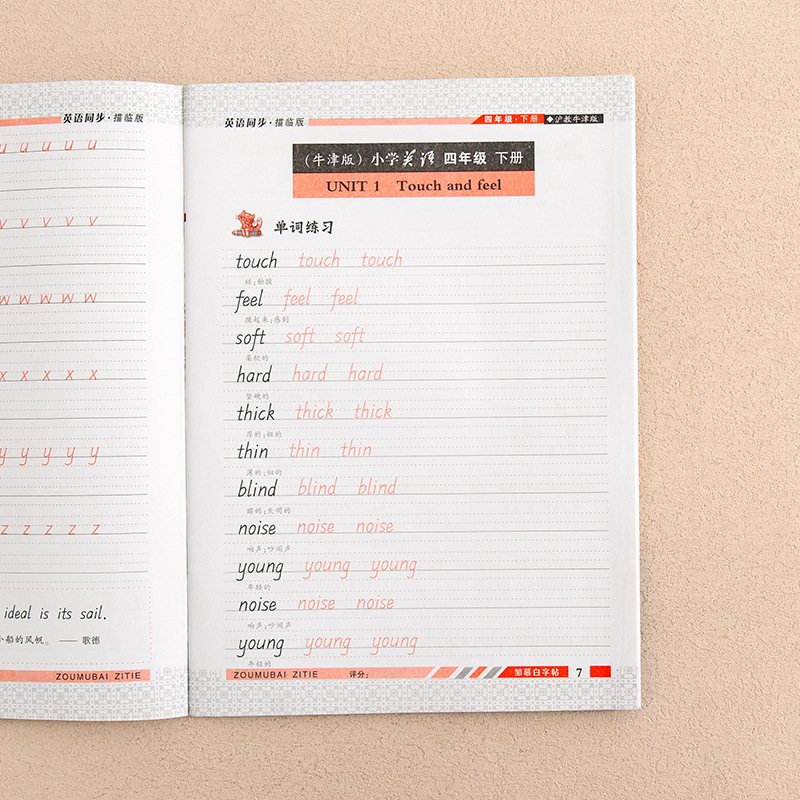 英语同步·描临版
u u u u u
v v v v v
w w w w w
x x x x x
y y y y y
z z z z z
ideal is its sail.
小船的风帆。 —— 歌德
ZOUMUBAI ZITIE
英语同步·描临版
四年级·下册 ◆沪教牛津版
(牛津版) 小学英语 四年级 下册
UNIT 1 Touch and feel
单词练习
touch touch touch
碰;触摸
feel feel feel
摸起来;感到
soft soft soft
柔软的
hard hard hard
坚硬的
thick thick thick
厚的;粗的
thin thin thin
薄的;细的
blind blind blind
瞎的;失明的
noise noise noise
响声;吵闹声
young young young
年轻的
noise noise noise
响声;吵闹声
young young young
年轻的
ZOUMUBAI ZITIE 评分: 邹慕白字帖 7